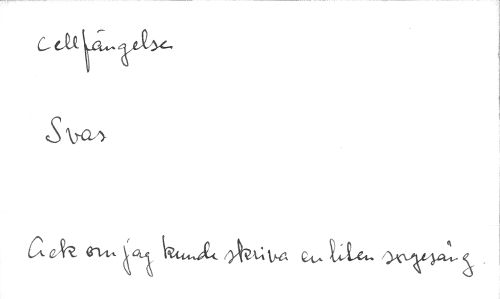 Cellfängelse
Svas
Ack om jag kunde skriva en liten sorgesång